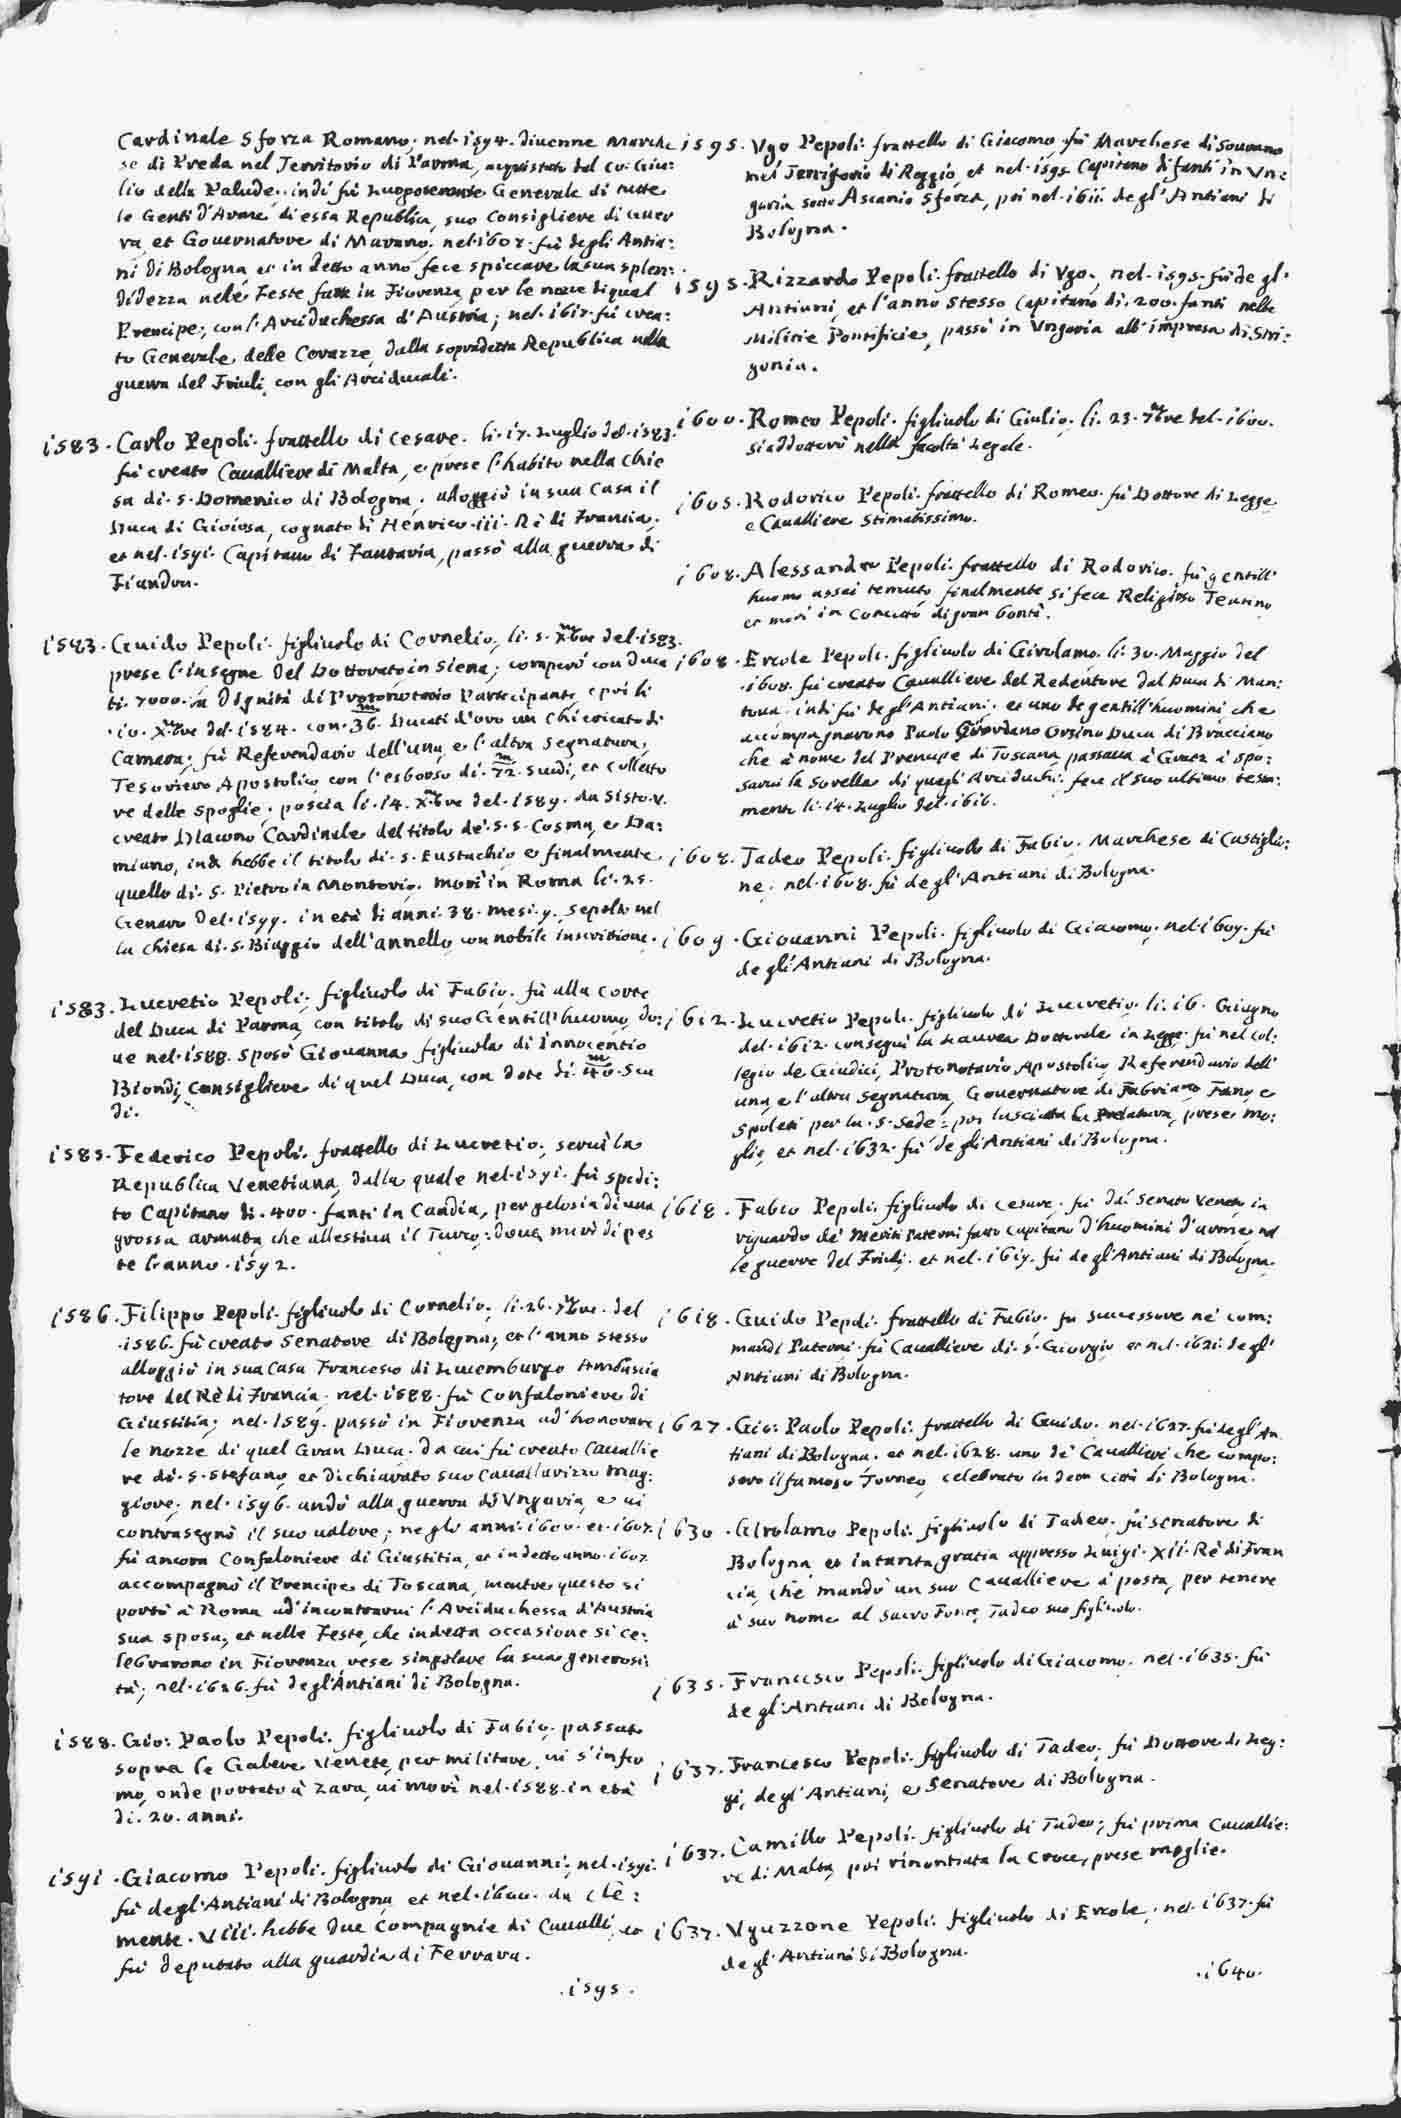 Cardinale Sforza Romano; nel·1594· diuenne Marche
se di Preda nel Territorio di Parma, acquistato dal Co: Giu:
lio della Palude, indi fù Luogotenente Generale di tutte
le Genti d'Arme di essa Republica, suo Consigliere di Guer
ra, et Gouernatore di Marano; nel·1607· fù degli Antia:
ni di Bologna et in detto anno fece spiccare la sua splen:
didezza nelle Feste fatte in Fiorenza per le nozze di qual
Prencipe, con l'Arciduchessa d'Austria; nel·1617· fù crea:
to Generale delle Corazze, dalla sopradetta Republica nella
guerra del Friuli, con gli Arciducali·
1583· Carlo Pepoli· frattello di Cesare· li·17· Luglio del·1583·
fù creato Caualliere di Malta, e prese l'habito nella Chie
sa di·S·Domenico di Bologna; alloggiò in sua Casa il
Duca di Gioiosa, cognato di Henrico·iii·Rè di Francia;
et nel·1591· Capitano di Fantaria, passò alla guerra di
Fiandra·
1583· Guido Pepoli· figliuolo di Cornelio, li·5·Xbre del·1583·
prese l'insegne del Dottorato in Siena; comperò con duca
ti·7000·la Dignità di Protonotario Partecipante, e poi li
·10·Xbre del·1584·con·36·m Ducati d'oro un Chiericato di
Camera; fù Referendario dell'una, e l'altra Segnatura,
Tesoriero Apostolico, con l'esborso di·72·m Scudi, et Colletto
re delle Spoglie; poscia li·14·Xbre del·1589·da Sisto·V·
creato Diacono Cardinale del titolo de'·S·S·Cosma, e Da:
miano, indi hebbe il titolo di·S·Eustachio e finalmente
quello di·S·Pietro in Montorio; morì in Roma li·25·
Genaro del·1599·in età di anni·38·mesi·9·, sepolto nel
la Chiesa di·S·Biaggio dell'annello, con nobile inscrittione·
1583· Lucretio Pepoli; figliuolo di Fabio· fù alla Corte
del Duca di Parma, con titolo di suo Gentill'huomo, do:
ue nel·1588·sposò Giouanna figliuola di Innocentio
Biondi, Consigliere di quel Duca, con dote di·40·m Scu
di·
1585· Federico Pepoli· frattello di Lucretio; seruì la
Republica Venetiana, dalla quale nel·1591·fù spedi:
to Capitano di·400·fanti in Candia, per gelosia di una
grossa armata, che allestiua il Turco: doue, morì di pes
te l'anno·1592·
1586· Filippo Pepoli· figliuolo di Cornelio; li·26·7bre·del
·1586·fù creato Senatore di Bologna; et l'anno stesso
alloggiò in sua Casa Francesco di Lucemburgo Ambascia
tore del Rè di Francia; nel·1588·fù Confaloniere di
Giustitia; nel·1589·passò in Fiorenza ad'honorare
le nozze di quel Gran Duca· da cui fù creato Cauallie
re di·S·Stefano, et dichiarato suo Cauallarizzo Mag:
giore; nel·1596·andò alla guerra di Vngaria, e ui
contrasegnò il suo ualore; ne gli anni·1600·et·1607·
fù ancora Confaloniere di Giustitia, et in detto anno·1607
accompagnò il Prencipe di Toscana, mentre questo si
portò à Roma ad'incontrarui l'Arciduchessa d'Austria
sua sposa; et nelle Feste, che in detta occasione si ce:
lebrarono in Fiorenza rese singolare la sua generosi:
tà; nel·1626·fù degl'Antiani di Bologna·
1588· Gio: Paolo Pepoli· figliuolo di Fabio; passato
sopra le Galere Venete, per militare, ui s'infer
mo, onde portato à Zara, ui morì nel·1588·in età
di·20·anni·
1591· Giacomo Pepoli· figliuolo di Giouanni; nel·1591·
fù degl'Antiani di Bologna, et nel·1600·da Cle:
mente·Viii·hebbe due Compagnie di Caualli, et
fù deputato alla guardia di Ferrara·
·1595·
1595· Vgo Pepoli· frattello di Giacomo· fù Marchese di Sourano
nel Territorio di Reggio, et nel·1595·Capitano di fanti in Vn:
garia sotto Ascanio Sforza, poi nel·1611·degl'Antiani di
Bologna·
1595· Rizzardo Pepoli· frattello di Vgo; nel·1595·fù de gl'
Antiani, et l'anno stesso Capitano di·200·fanti nelle
Militie Pontificie, passò in Vngaria all'impresa di Stri:
gonia·
1600· Romeo Pepoli· figliuolo di Giulio; li·23·7bre del·1600·
si addottorò nella facoltà Legale·
1605· Rodorico Pepoli· frattello di Romeo· fù Dottore di Legge
e Caualliere Stimatissimo·
1608· Alessandro Pepoli· frattello di Rodorico; fù gentill'
huomo assai temuto, finalmente si fece Religioso Teatino
et morì in concetto di gran bontà·
1608· Ercole Pepoli· figliuolo di Girolamo·li·30·Maggio del
·1608·fù creato Cauallere del Redentore dal Duca di Man:
toua·indi fù degl'Antiani·et uno de gentill'huomini che
accompagnarono Paolo Giordano Orsino Duca di Bracciano
che à nome del Prencipe di Toscana, passaua à Gratz à spo:
sarui la Sorella di quegl'Arciduchi·fece il suo ultimo testa:
mento li·14·Luglio del·1616·
1608· Tadeo Pepoli· figliuolo di Fabio· Marchese di Castiglio:
ne; nel·1608·fù degl'Antiani di Bologna·
1609· Giouanni Pepoli· figliuolo di Giacomo; nel·1609·fù
de gl'Antiani di Bologna·
1612· Lucretio Pepoli· figliuolo di Lucretio· li·16·Giugno
del·1612·conseguì la Laurea Dottorale in Legge·fù nel Col:
legio de Giudici, Protonotario Apostolico, Referendario dell'
una, e l'altra Segnatura, Gouernatore di Fabriano, Fano, e
Spoleti per la·S·Sede: poi lasciata la Prelatura, prese mo:
glie, et nel·1632·fù de gli Antiani di Bologna·
1618· Fabio Pepoli· figliuolo di Cesare· fù dal Senato Veneto in
riguardo de' Meriti Paterni fatto Capitano d'huomini d'arme, nel
le guerre del Friuli; et nel·1619·fù degl'Antiani di Bologna·
1618· Guido Pepoli· frattello di Fabio·fù Successore ne' com:
mandi Paterni·fù Cauallere di·S·Giorgio et nel·1621·degl'
Antiani di Bologna·
1627· Gio: Paolo Pepoli· frattello di Guido; nel·1627·fù degl'An
tiani di Bologna·et nel·1628·uno de' Cauallieri che compo:
sero il famoso Torneo, celebrato in detta Città di Bologna·
1630· Girolamo Pepoli· figliuolo di Tadeo· fù Senatore di
Bologna, et in tanta gratia appresso Luigi·Xii·Rè di Fran
cia, che mandò un suo Caualliere à posta, per tenere
à suo nome al Sacro Fonte, Tadeo suo figliuolo·
1635· Francesco Pepoli· figliuolo di Giacomo· nel·1635·fù
de gl'Antiani di Bologna·
1637· Francesco Pepoli· figliuolo di Tadeo; fù Dottore di Leg:
gi, degl'Antiani, e Senatore di Bologna·
1637· Camillo Pepoli· figliuolo di Tadeo; fù prima Cauallie:
re di Malta, poi rinontiata la Croce, prese moglie·
1637· Vguzzone Pepoli· figliuolo di Ercole; nel·1637·fù
degl'Antiani di Bologna·
·1640·